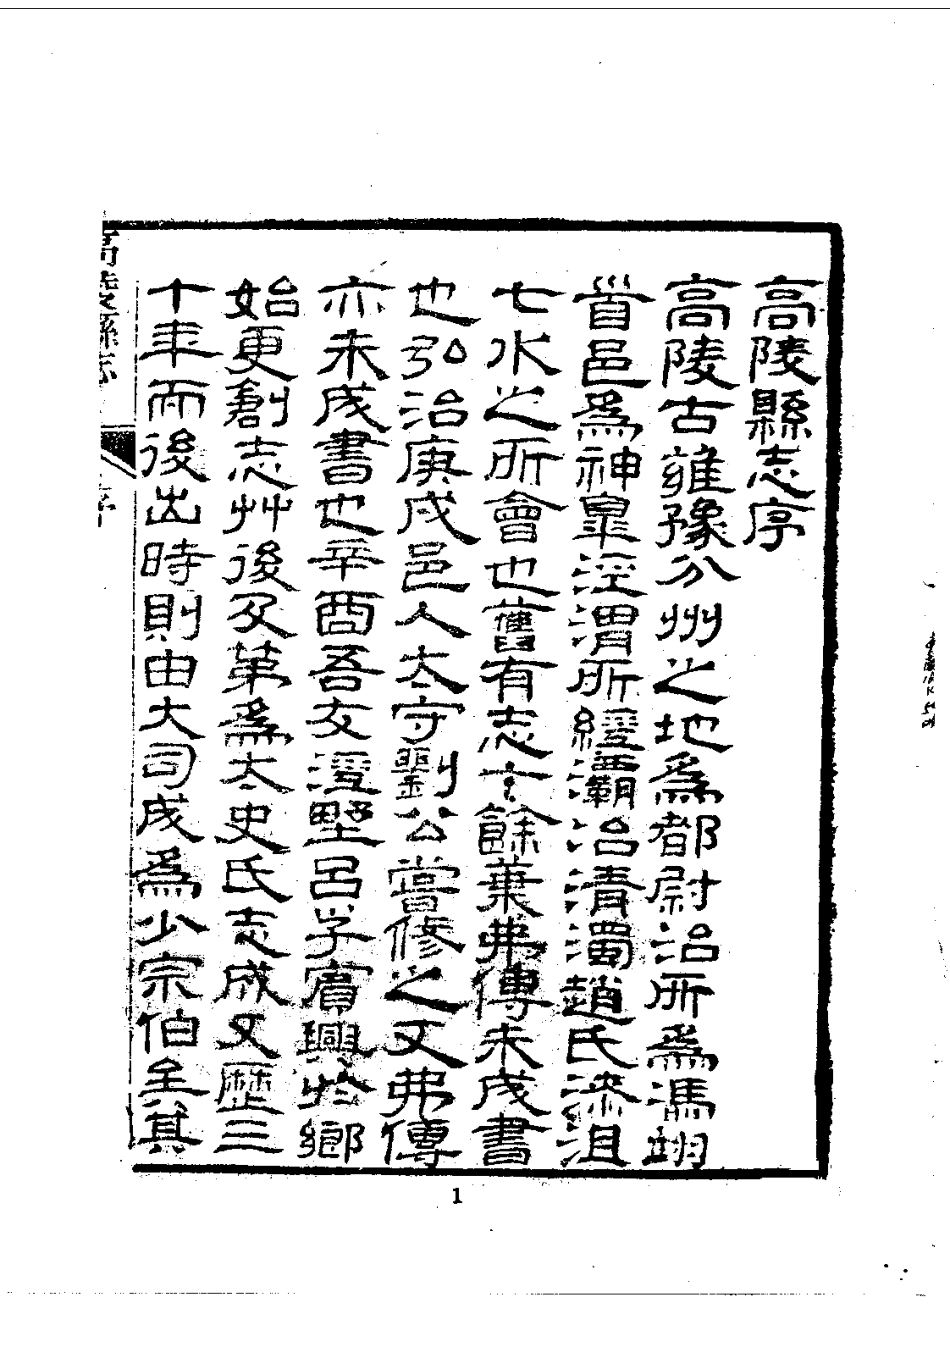 高陵縣志序
高陵古雍豫分州之地爲都尉治所爲馮翊
首邑爲神皐涇渭所經灞冶清濁趙氏漆沮
七水之所會也舊有志十餘葉弗傳未成書
也弘治庚戌邑人太守劉公嘗修之又弗傳
亦未成書也辛酉吾友涇墅呂子賓興於鄉
始更創志艸後及第爲太史氏志成又歷三
十年而後出時則由大司成爲少宗伯矣其
高陵縣志
序
1